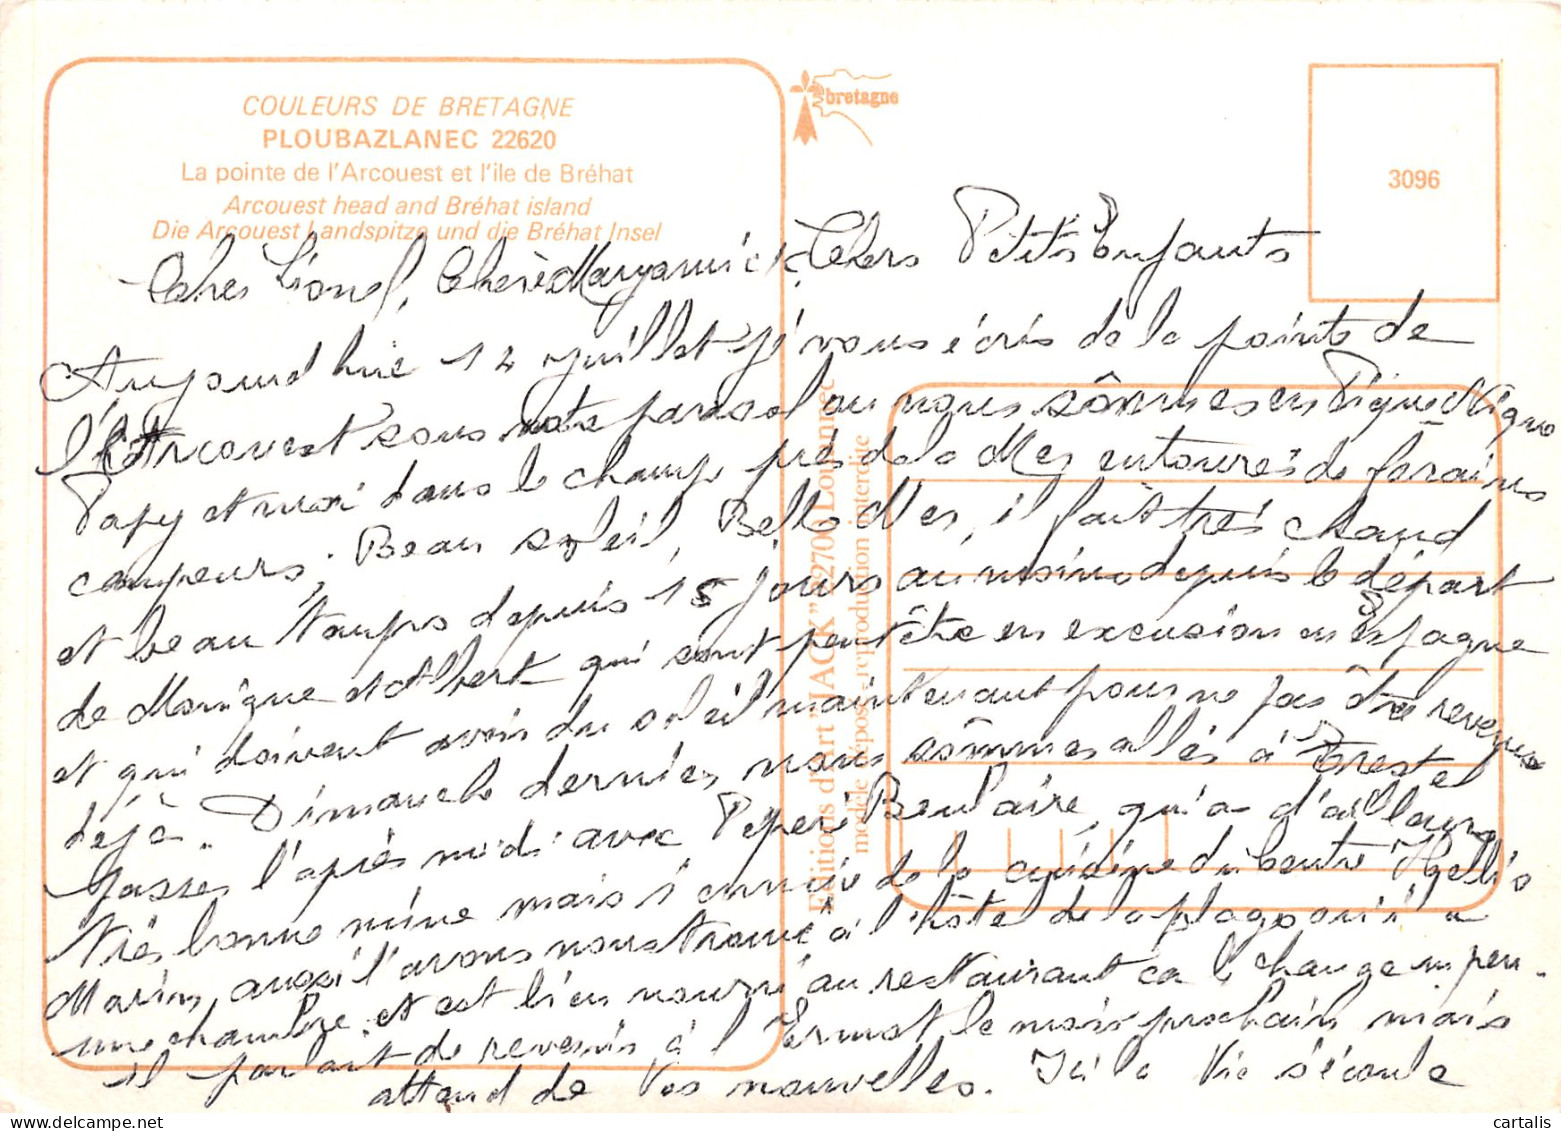 COULEURS DE BRETAGNE
PLOUBAZLANEC 22620
La pointe de l'Arcouest et l'ile de Bréhat
Arcouest head and Bréhat island
Die Arcouest Landspitze und die Bréhat Insel
bretagne
3096
Editions d'Art "JACK" Louannec
modèle déposé - reproduction interdite
Cher Lionel, Chère Maryannick, Chers Petits Enfants
Aujourd hui 12 juillet je vous écris de la pointe de
l'Arcouest sous notre parasol ou nous sômmes en Pique Nique
Papy et moi dans le champ près de la Mer entourés de forains
campeurs, Beau soleil, Belle Mer, il fait très chaud
et beau temps depuis 15 jours au moins depuis le départ
de Monique et Albert qui sont peut être en excursion en espagne
et qui doivent avoir du soleil maintenant pour ne pas être revenus
déjà. Dimanche dernier, nous sômmes allés à Trestel
passer l'après midi avec Pépère Beulaire, qu'a d'ailleurs
très bonne mine mais s'ennuie de la cuisine du Centre
Marin, aussi l'avons nous trouvé à l'hôtel de la plage où il a
une chambre et est bien nourri au restaurant ca le change un peu.
il parlait de revenir à l'Ermot le mois prochain mais
attend de Vos nouvelles. Ici la Vie s'écoule
cartalis